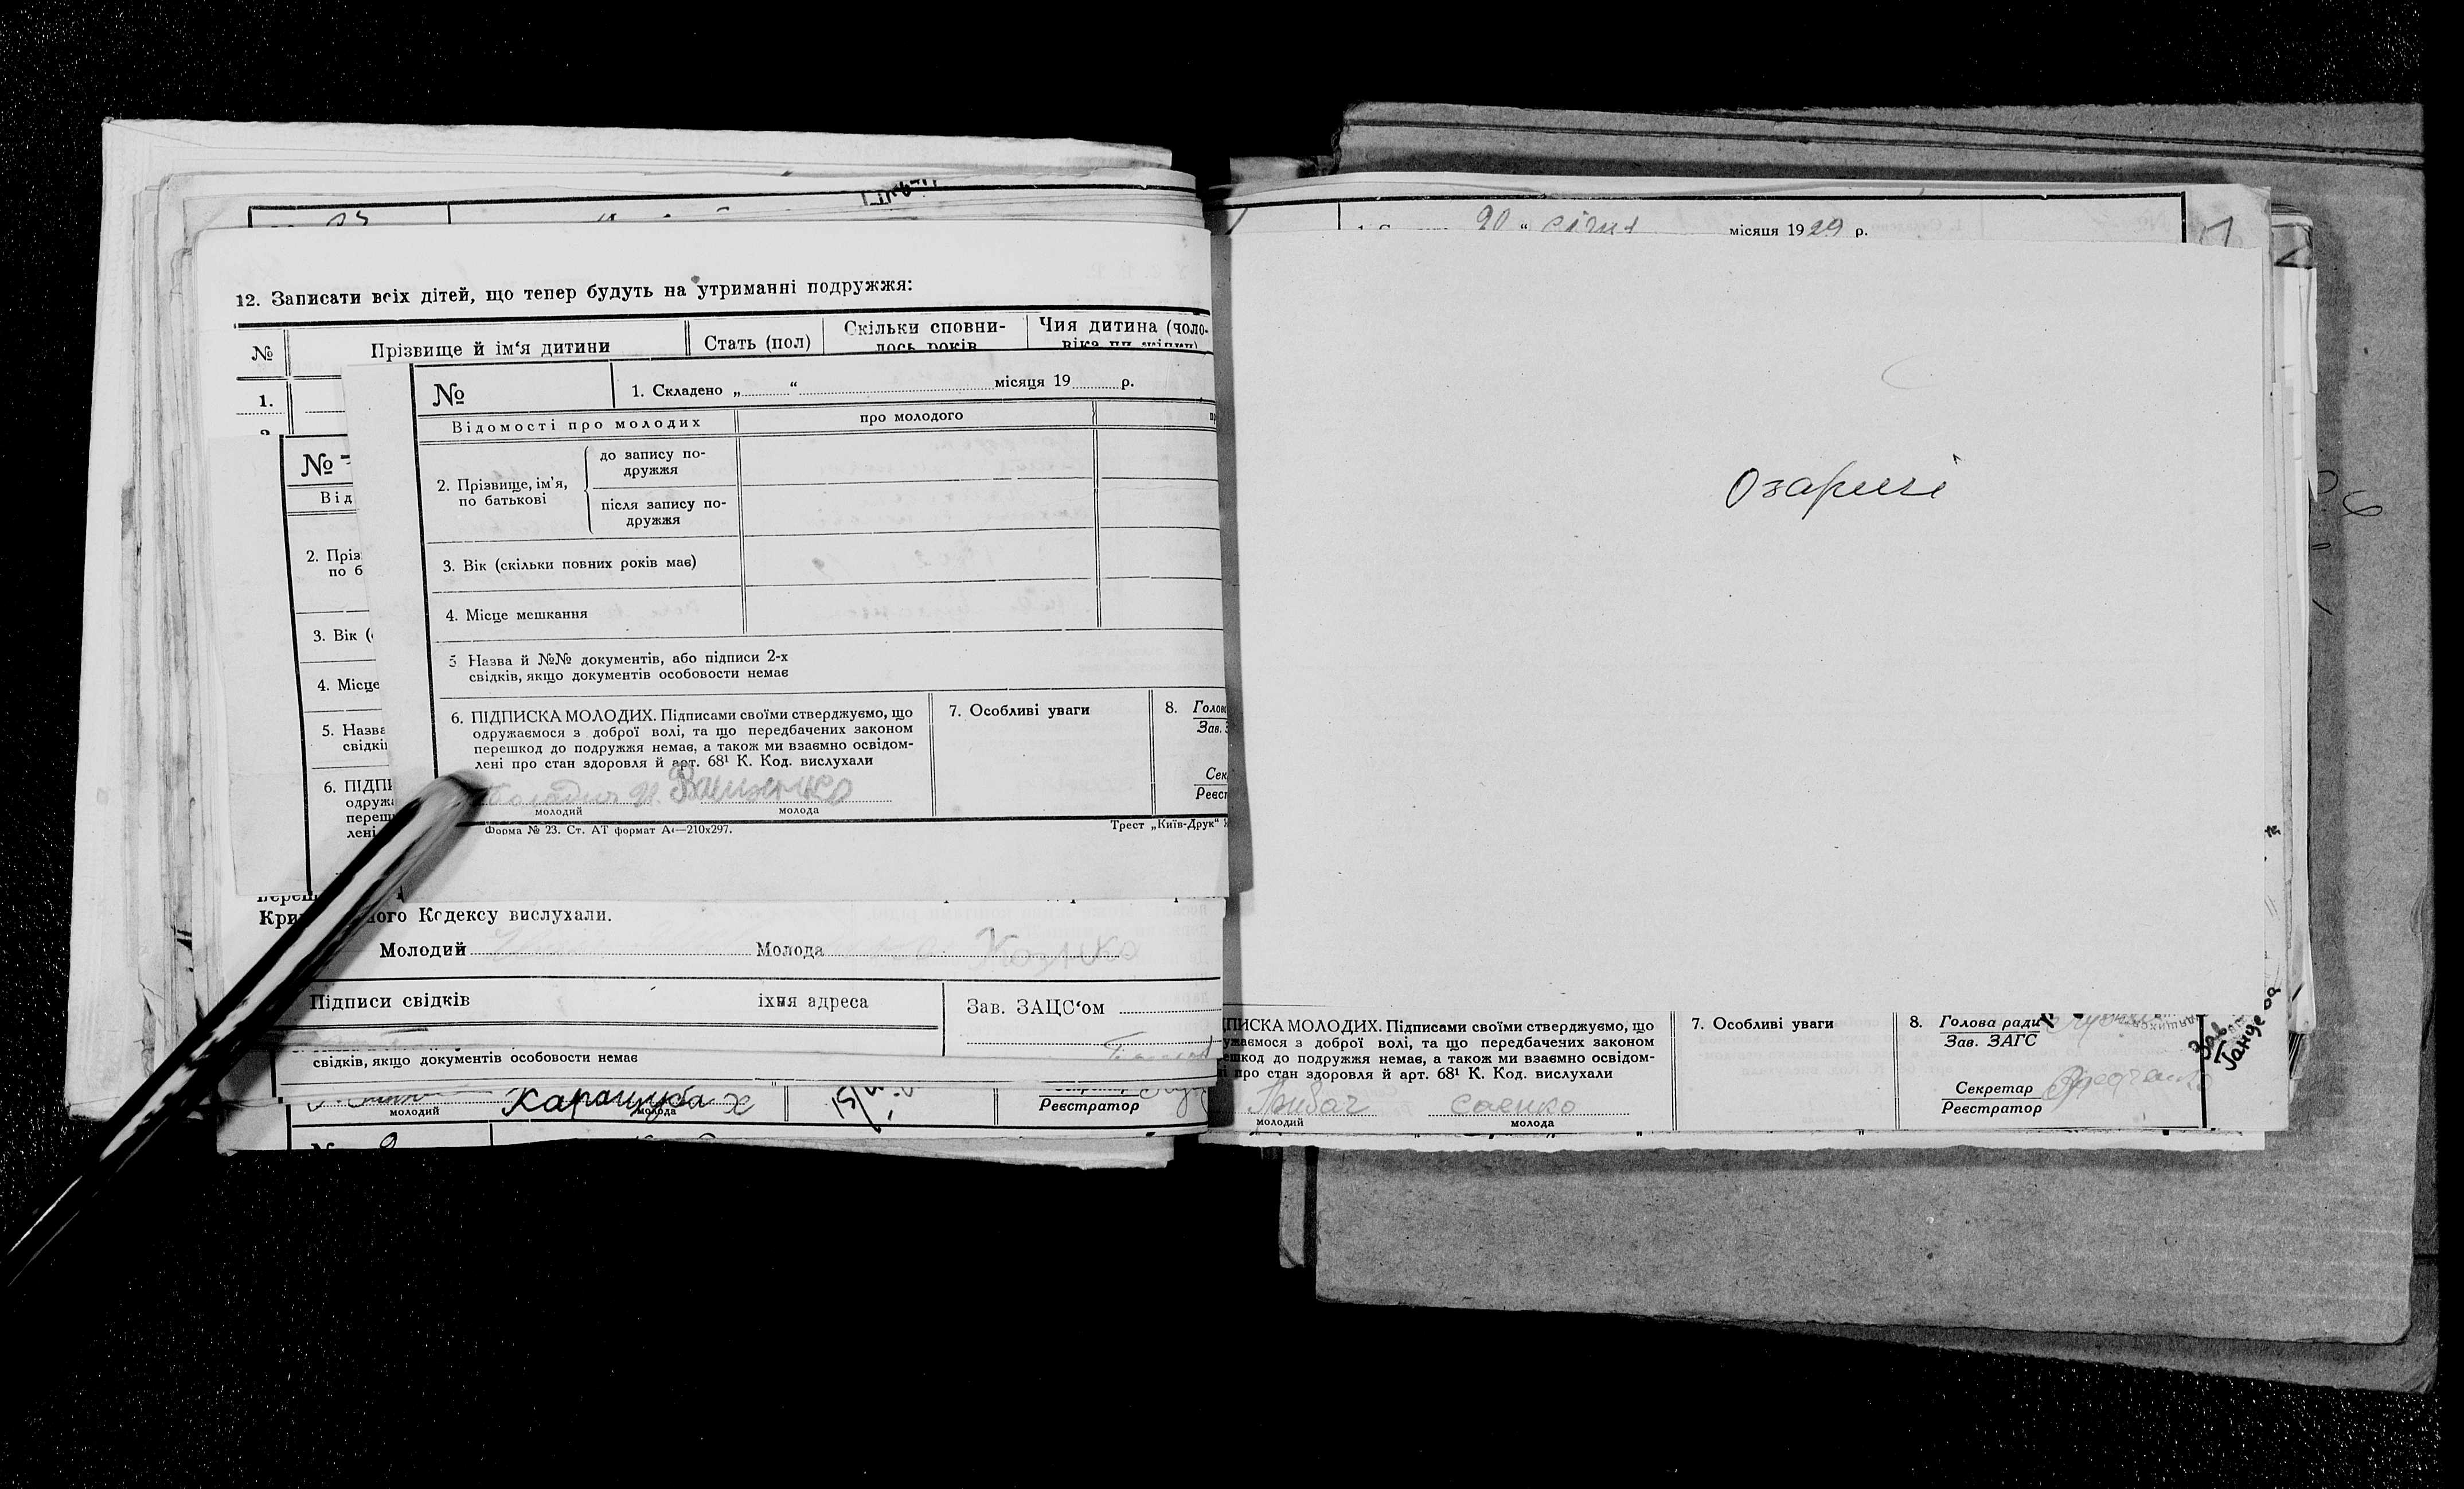 12. Записати всіх дітей, що тепер будуть на утриманні подружжя:
№ Прізвище й ім‘я дитини Стать (пол) Скільки сповни-лось років Чия дитина (чоло-віка чи жінки)
1.
№ 1. Складено „ “ місяця 19 р.
Відомості про молодих про молодого
2. Прізвище, ім’я, по батькові
до запису по-
дружжя
після запису по-
дружжя
3. Вік (скільки повних років має)
4. Місце мешкання
5 Назва й №№ документів, або підписи 2-х
свідків, якщо документів особовости немає
6. ПІДПИСКА МОЛОДИХ. Підписами своїми стверджуємо, що
одружаємося з доброї волі, та що передбачених законом
перешкод до подружжя немає, а також ми взаємно освідом-
лені про стан здоровля й арт. 68¹ К. Код. вислухали
молодий молода
7. Особливі уваги
8.
Форма № 23. Ст. АТ формат А4—210х297.
Трест „Київ-Друк“
№
Від
2. Пріз
по б
3. Вік (
4. Місце
5. Назва
свідкі
6. ПІДПИ
одружа
переш
лені
Кодексу вислухали.
Молодий Молода
Підписи свідків їхня адреса Зав. ЗАЦС‘ом
свідків, якщо документів особовости немає
Каращуба Х
молодий молода
Реєстратор
місяця 1929 р.
Озаричі
ПИСКА МОЛОДИХ. Підписами своїми стверджуємо, що
ужаємося з доброї волі, та що передбачених законом
ешкод до подружжя немає, а також ми взаємно освідом-
і про стан здоровля й арт. 68¹ К. Код. вислухали
саєнко
молодий молода
7. Особливі уваги
8. Голова ради
Зав. ЗАГС
Секретар
Реєстратор